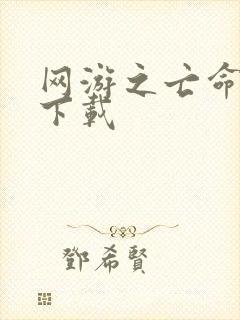 网游之亡命
下载
鄧希賢